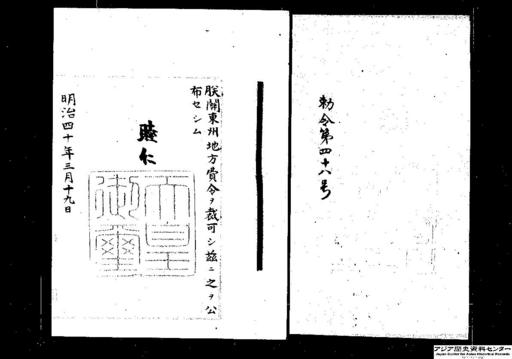 勅令第四十八号
朕關東州地方費令ヲ裁可シ茲ニ之ヲ公
布セシム
睦仁
天皇御璽
明治四十年三月十九日
アジア歴史資料センター
Japan Center for Asian Historical Records